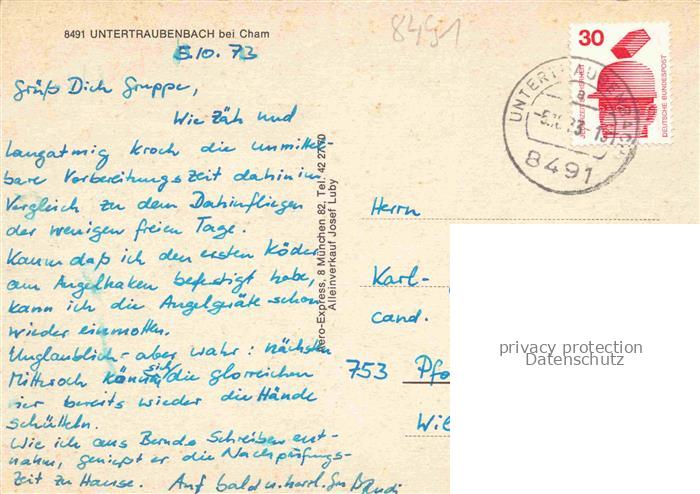 8491 UNTERTRAUBENBACH bei Cham
8491
5.10.73
Grüß Dich Gruppe,
Wie Zäh und
langatmig kroch die unmittel-
bare Vorbereitungszeit dahin im
Vergleich zu dem Dahinfliegen
der wenigen freien Tage.
Kaum daß ich den ersten Köder
am Angelhaken befestigt habe,
kann ich die Angelgeräte schon
wieder einmotten.
Unglaublich - aber wahr: nächsten
Mittwoch können sich die glorreichen
vier bereits wieder die Hände
schütteln.
Wie ich aus Bernds Schreiben ent-
nahm, genießt er die Nachprüfungs-
zeit zu Hause. Auf bald u. herzl. Gruß Rudi
Aero-Express, 8 München 82, Tel. 42 27 70
Alleinverkauf Josef Luby
30
JEDERZEIT SICHERHEIT
DEUTSCHE BUNDESPOST
UNTERTRAUBENBACH
a
8491
Herrn
Karl-
cand.
753 Pfo
Wil
privacy protection
Datenschutz